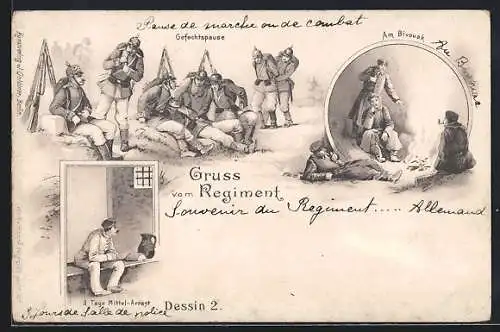 Pause de marche ou de combat
Gefechtspause
Am Bivouak
Au Bivouac
Gruss
vom Regiment
Souvenir du Regiment.... Allemand
3 Tage Mittel-Arrest
Dessin 2.
3 jours de Salle de police